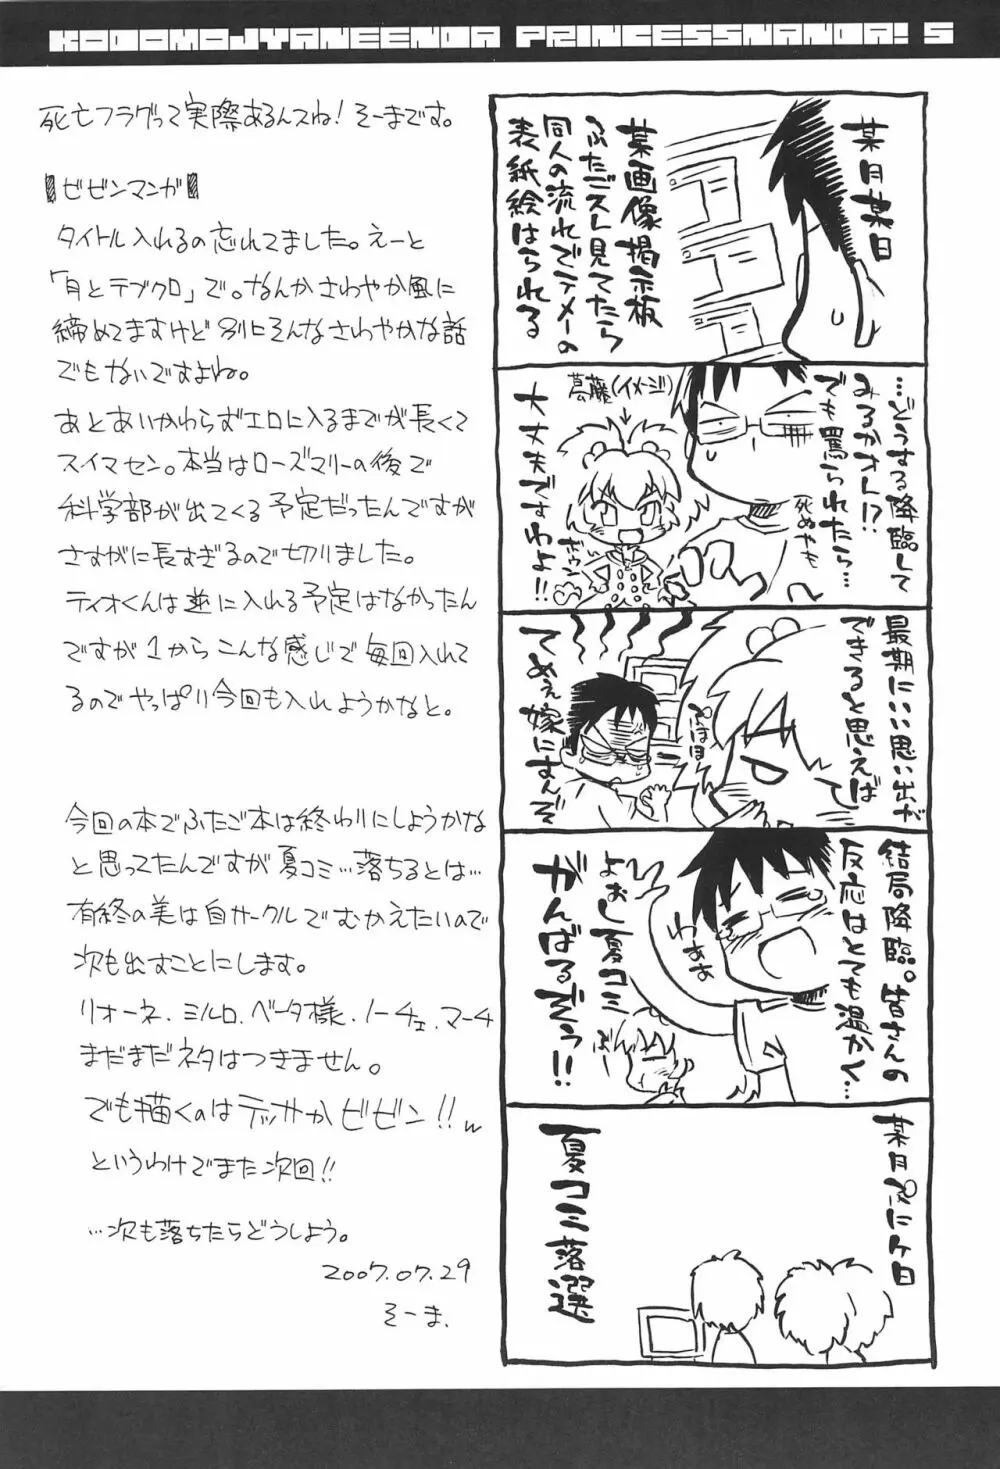 KODOMOJYANEENDA PRINCESSNANDA! 5
死亡フラグって実際あるんスね！そーまです。
【ビビンマンガ】
タイトル入れるの忘れてました。えーと
「月とテブクロ」で。なんかさわやか風に
締めてますけど別にそんなさわやかな話
でもないですよね。
あとあいかわらずエロに入るまでが長くて
スイマセン。本当はローズマリーの後で
科学部が出てくる予定だったんですが
さすがに長すぎるので切りました。
ティオくんは並に入れる予定はなかったん
ですが1からこんな感じで毎回入れて
るのでやっぱり今回も入れようかなと。
今回の本でふたご本は終わりにしようかな
と思ってたんですが夏コミ…落ちるとは…
有終の美は自サークルでむかえたいので
次も出すことにします。
リオーネ、ミルロ、ベータ様、ノーチェ、マーチ
まだまだネタはつきません。
でも描くのはテッサかビビン!!w
というわけでまた次回!!
…次も落ちたらどうしよう。
2007.07.29
そーま.
某月某日
某画像掲示板
ふたごスレ見てたら
同人の流れでテメーの
表紙絵はられる
…どうする降臨して
みるかオレ!?
でも罵られたら…
死ぬやも
葛藤(イメージ)
大丈夫ですわよ!!
最期にいい思い出が
できると思えば
てめぇ嫁にすんぞ
結局降臨。皆さんの
反応はとても温かく…
わぁぁ
よぉし夏コミ
がんばるぞぅ!!
夏コミ落選